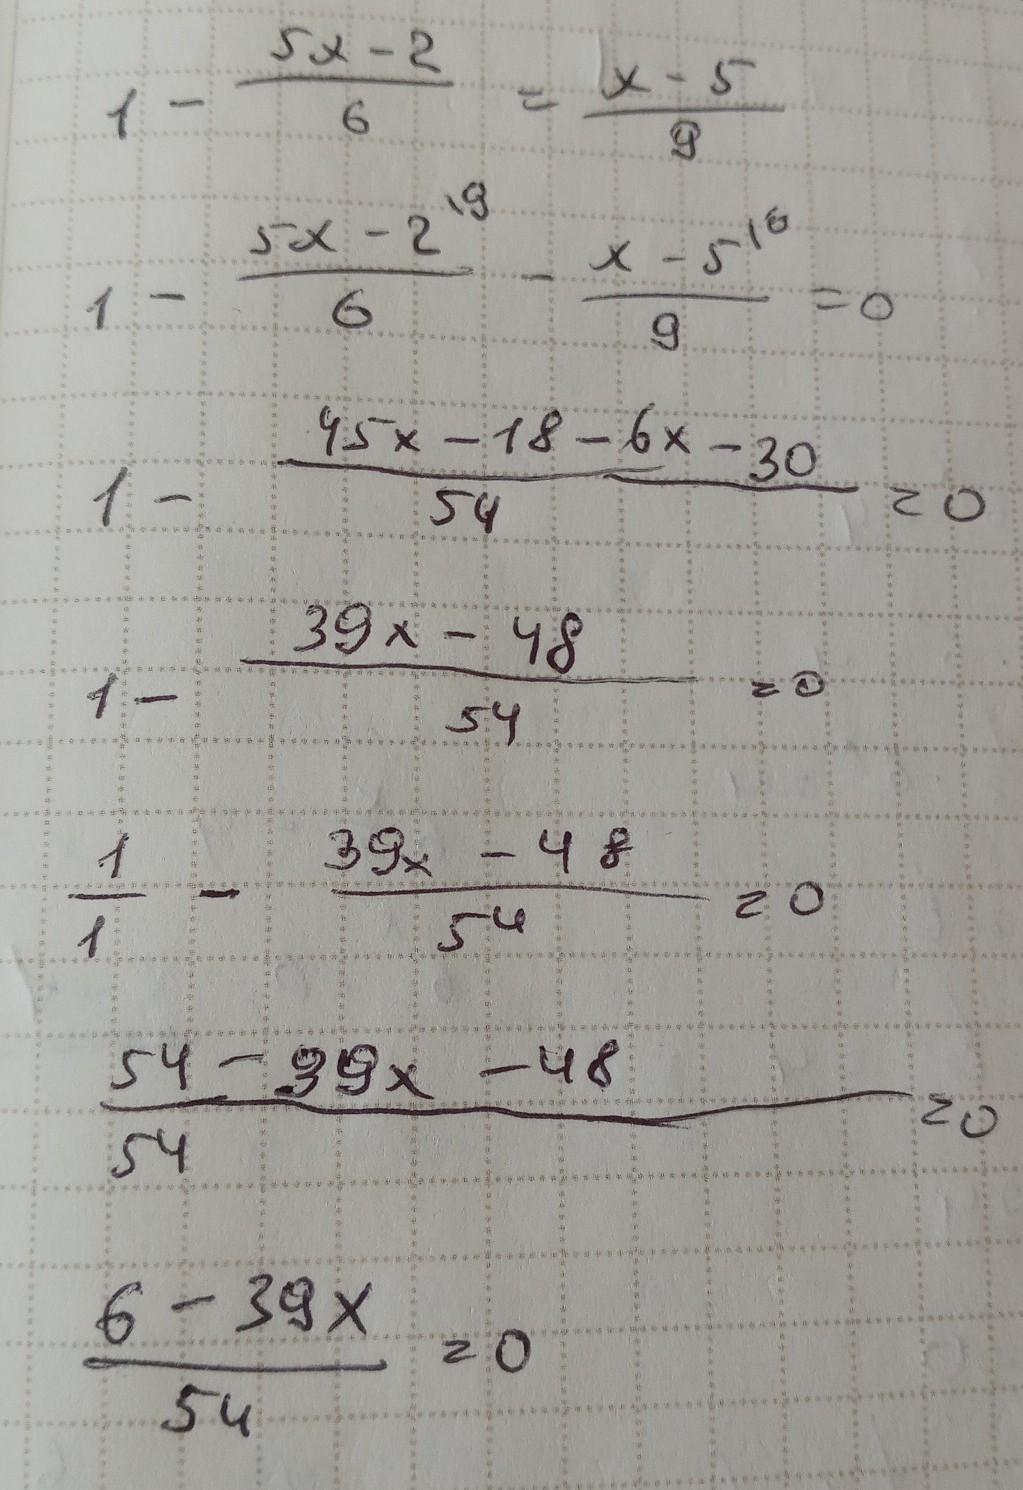 1 - (5x - 2)/6 = (x - 5)/9
1 - (5x - 2^{\9})/6 - (x - 5^{\6})/9 = 0
1 - (45x - 18 - 6x - 30)/54 = 0
1 - (39x - 48)/54 = 0
1/1 - (39x - 48)/54 = 0
(54 - 39x - 48)/54 = 0
(6 - 39x)/54 = 0